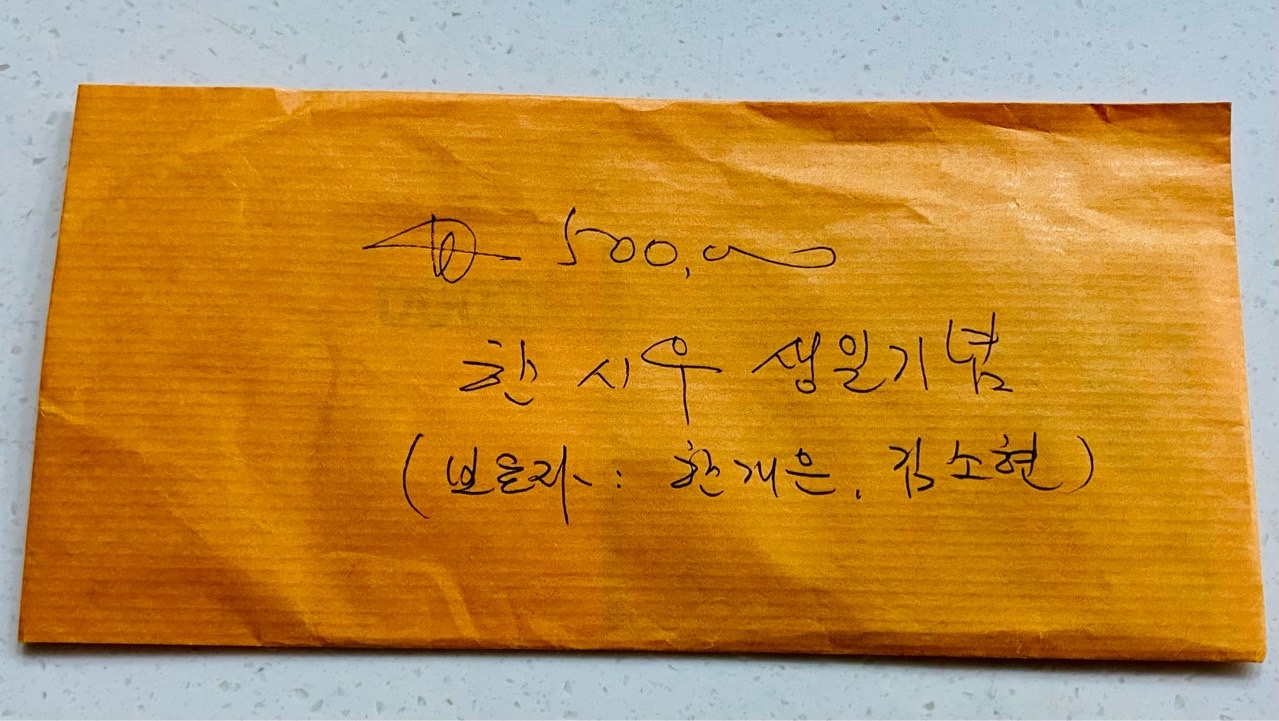 ₩ 500,000
한시우 생일기념
(보호자: 한재은, 김소현)